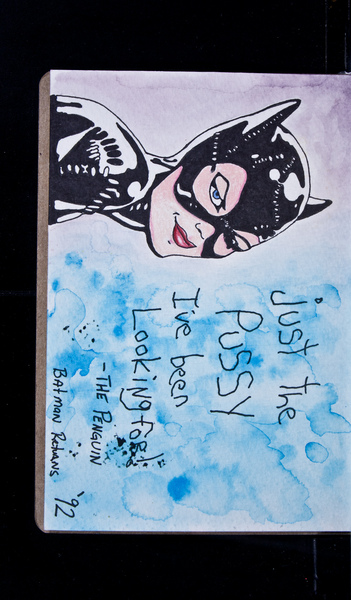 Just the
PUSSY
I've been
Looking for!
- THE PENGUIN
BATMAN Returns '92